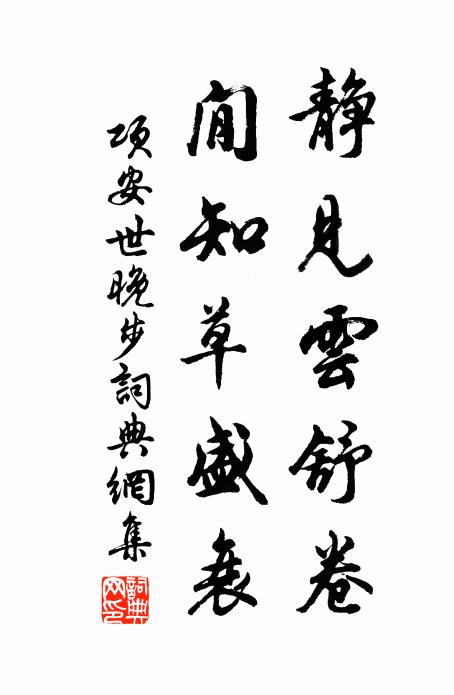 靜見雲舒卷
閒知草盛衰
項安世晚步詞典網集
詞典網印